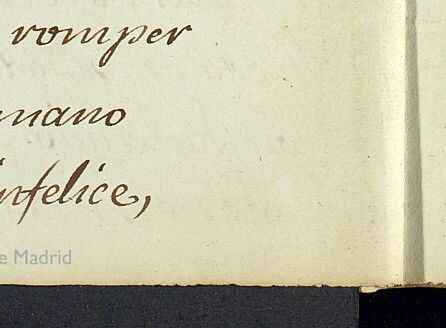 romper
mano
infelice,
e Madrid